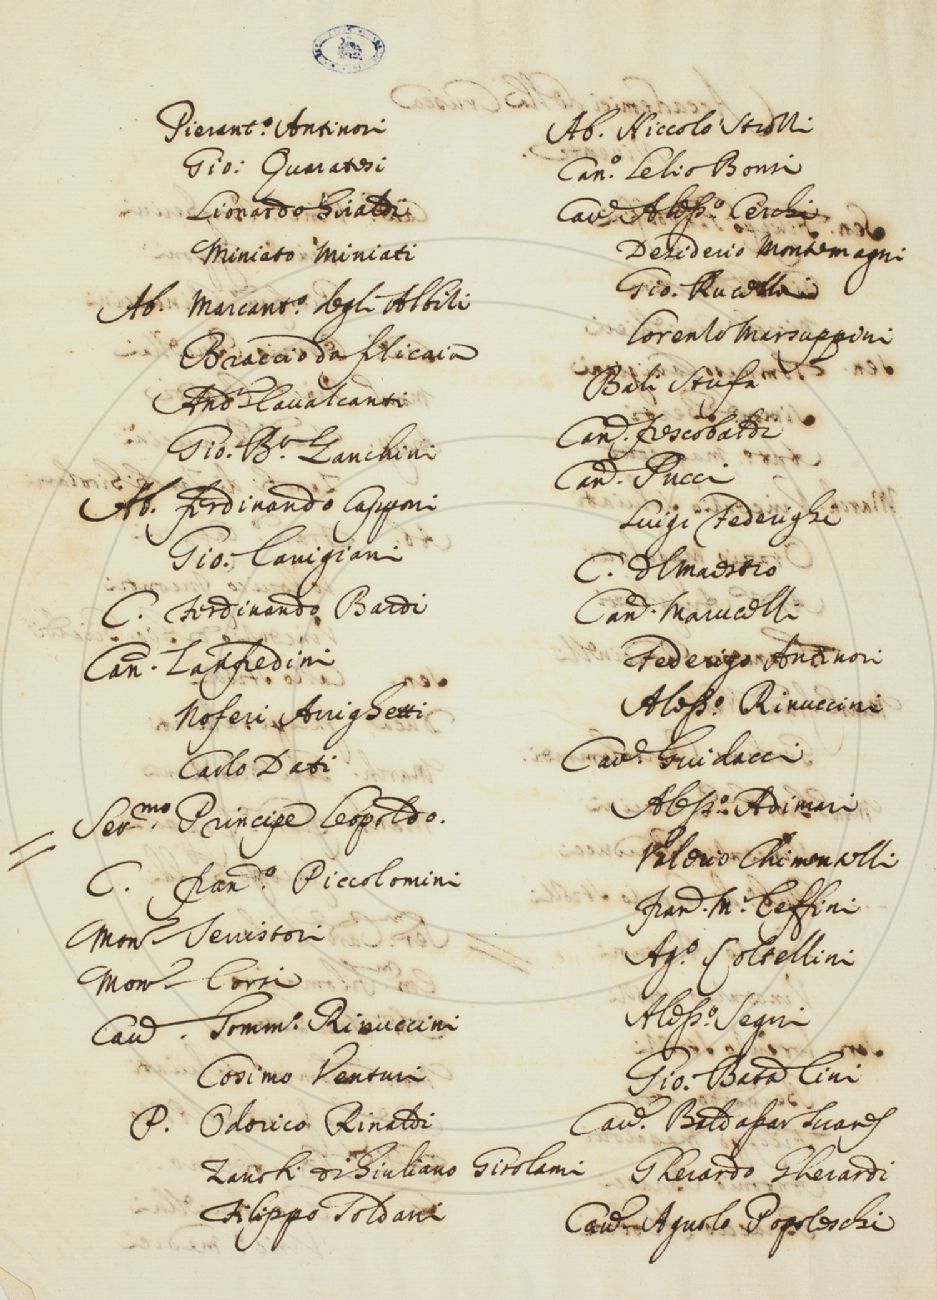 Pierant.º Antinori
Gio: Quaratesi
Lionardo Giraldi
Miniato Miniati
Ab. Marcant.º degli Albili
Braccio da filicaia
And.ª Cavalcanti
Gio. B.ª Zanchini
Ab. ferdinando Capponi
Gio. Cavigiani
C. Ferdinando Bardi
Can. Lanfredini
Noferi Arrighetti
Carlo Dati
Ser.mo Principe Leopoldo.
C. fran.º Piccolomini
Mon.r Servistori
Mon.r Corsi
Cav. Tomm.º Rinuccini
Cosimo Venturi
P. Odorico Rinaldi
Zanobi di Giuliano Girolami
Filippo Soldani
Ab. Niccolo Strozzi
Can.º Lelio Bonsi
Cav. Aless.º Cerchi
Desiderio Montemagni
Gio. Rucellai
Lorenzo Marsuppini
Bali Stufa
Can. frescobaldi
Can. Pucci
Luigi Federighi
C. del Maestro
Can. Marucelli
Federigo Antinori
Aless.º Rinuccini
Cav. Guidacci
Aless.º Adimari
Valerio Chimentelli
fran. M.ª Ceffini
Ag.º Coltellini
Aless.º Segni
Gio. Bata Cini
Cav. Baldassar Suares
Gherardo Gherardi
Cav. Agnolo Popoleschi